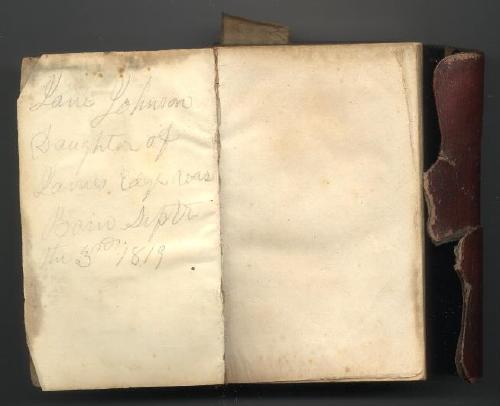 Jane Johnson
Daughter of
James Edge was
Born Septr
the 3rd 1819